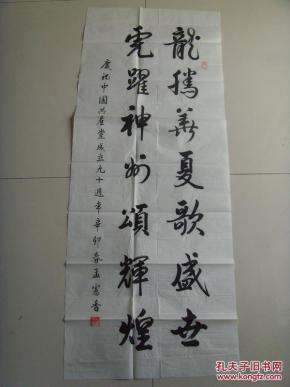 龍騰華夏歌盛世
虎躍神州頌輝煌
慶祝中國共產黨成立九十週年辛卯春孟富香
孔夫子旧书网